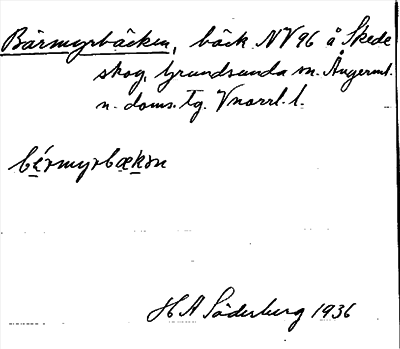 Bärmyrbäcken, bäck NV 96 å Skede
skog, Grundsunda sn. Ångerml.
n. doms. Tg. Vnorrl. l.
bérmyrbækɜn
H A Söderberg 1936